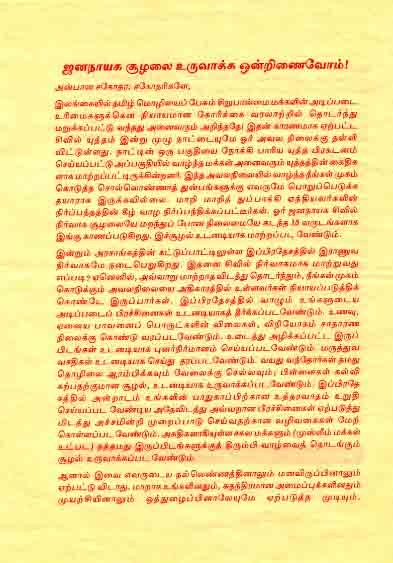 ஜனநாயக சூழலை உருவாக்க ஒன்றிணைவோம்!
அன்பான சகோதர, சகோதரிகளே,
இலங்கையில் தமிழ் மொழியைப் பேசும் சிறுபான்மை மக்களின் அடிப்படை
உரிமைகளுக்கென நியாயமான கோரிக்கை வரலாற்றில் தொடர்ந்து
மறுக்கப்பட்டு வந்தது அனைவரும் அறிந்ததே! இதன் காரணமாக ஏற்பட்ட
சிவில் யுத்தம் இன்று முழு நாட்டையுமே ஓர் அவல நிலைக்கு தள்ளி
விட்டுள்ளது. நாட்டின் ஒரு பகுதியை நோக்கி பாரிய யுத்த பிரகடனம்
செய்யப்பட்டு அப்பகுதியில் வாழ்ந்த மக்கள் அனைவரும் யுத்தத்தின் கைதிக
ளாக மாற்றப்பட்டிருக்கின்றனர். இந்த அவலநிலையில் வாழ்ந்த நீங்கள் முகம்
கொடுத்த சொல்லொண்ணாத் துன்பங்களுக்கு எவருமே பொறுப்பெடுக்க
தயாராக இருக்கவில்லை. மாறி மாறித் துப்பாக்கி ஏந்தியவர்களின்
நிர்ப்பந்தத்தின் கீழ் வாழ நிர்ப்பந்திக்கப்பட்டீர்கள். ஓர் ஜனநாயக சிவில்
நிர்வாக சூழலையே மறந்துப் போன நிலைமையே கடந்த 15 வருடங்களாக
இங்கு காணப்படுகிறது. இச்சூழல் உடனடியாக மாற்றப்பட வேண்டும்.
இன்றும் அரசாங்கத்தின் கட்டுப்பாட்டிலுள்ள இப்பிரதேசத்தில் இராணுவ
நிர்வாகமே நடைபெறுகிறது. இதனை சிவில் நிர்வாகமாக மாற்றுவது
எப்படி? ஏனெனில், அவ்வாறு மாற்றாதவிடத்து தொடர்ந்தும், நீங்கள் முகம்
கொடுக்கும் அவலநிலையை அதிகாரத்தில் உள்ளவர்கள் நியாயப்படுத்திக்
கொண்டே இருப்பார்கள். இப்பிரதேசத்தில் வாழும் உங்களுடைய
அடிப்படைப் பிரச்சினைகள் உடனடியாகத் தீர்க்கப்படவேண்டும். உணவு,
ஏனைய பாவனைப் பொருட்களின் விலைகள், விநியோகம் சாதாரண
நிலைக்கு கொண்டு வரப்படவேண்டும். உடைத்து அழிக்கப்பட்ட இருப்
பிடங்கள் உடனடியாக புனர்நிர்மாணம் செய்யப்படவேண்டும். மருத்துவ
வசதிகள் உடனடியாக செய்து தரப்படவேண்டும். வயது வந்தோர்கள் தமது
தொழிலை ஆரம்பிக்கவும் வேலைக்கு செல்லவும்; பிள்ளைகள் கல்வி
கற்பதற்குமான சூழல், உடனடியாக உருவாக்கப்படவேண்டும். இப்பிரதே
சத்தில் அன்றாடம் உங்களின் பாதுகாப்பிற்கான உத்தரவாதம் உறுதி
செய்யப்பட வேண்டிய அதேவிடத்து அவ்வாறான பிரச்சினைகள் ஏற்படுத்து
மிடத்து அச்சமின்றி முறைப்பாடு செய்வதற்கான வழிவகைகள் மேற்
கொள்ளப்படவேண்டும். அகதிகளாகியுள்ள சகல மக்களும் (முஸ்லீம் மக்கள்
உட்பட) தத்தமது இருப்பிடங்களுக்குத் திரும்பி வாழ்வைத் தொடங்கும்
சூழல் உருவாக்கப்படவேண்டும்.
ஆனால் இவை எவருடைய நல்லெண்ணத்தினாலும் மனவிருப்பினாலும்
ஏற்பட்டு விடாது. மாறாக உங்களினதும், சுதந்திரமான அமைப்புக்களினதும்
முயற்சியினாலும் ஒத்துழைப்பினாலேயுமே ஏற்படுத்த முடியும்.